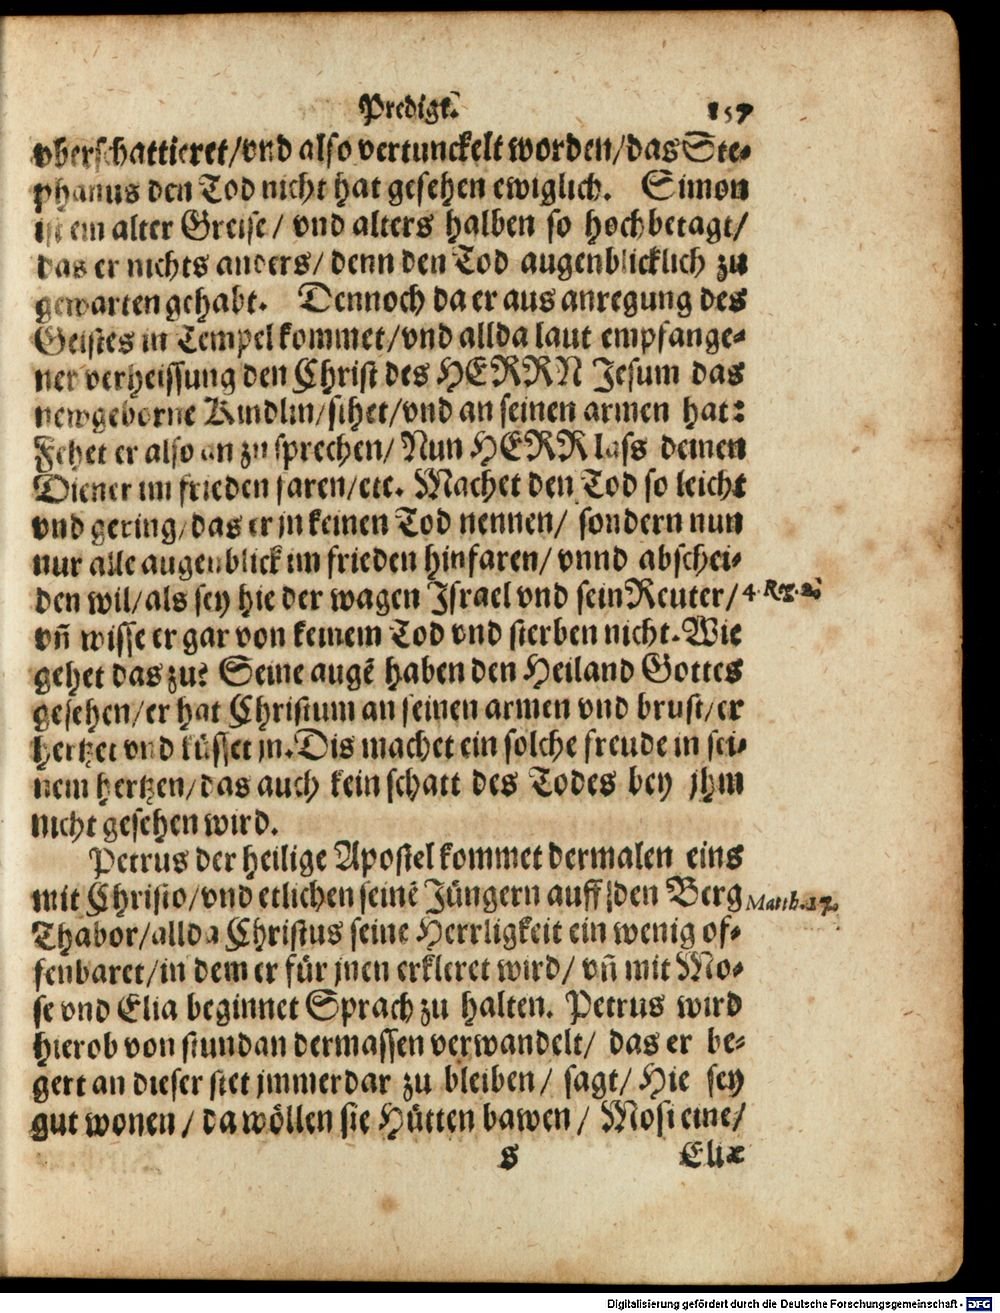 Predigt. 157
vberschattieret/vnd also vertunckelt worden/das Ste-
phanus den Tod nicht hat gesehen ewiglich. Simon
ist ein alter Greise/ vnd alters halben so hochbetagt/
das er nichts anders/ denn den Tod augenblicklich zu
gewarten gehabt. Dennoch da er aus anregung des
Geistes in Tempel kommet/vnd allda laut empfange-
ner verheissung den Christ des HERRN Jesum das
newgeborne Kindlin/sihet/vnd an seinen armen hat:
Fehet er also an zu sprechen/ Nun HERR lass deinen
Diener im frieden faren/etc. Machet den Tod so leicht
vnd gering/das er jn keinen Tod nennen/ sondern nun
nur alle augenblick im frieden hinfaren/ vnnd abschei-
den wil/als sey hie der wagen Israel vnd sein Reuter/ 4. Reg. 2.
vñ wisse er gar von keinem Tod vnd sterben nicht. Wie
gehet das zu? Seine augẽ haben den Heiland Gottes
gesehen/er hat Christum an seinen armen vnd brust/er
hertzet vnd küsset jn. Dis machet ein solche freude in sei-
nem hertzen/das auch kein schatt des Todes bey jhm
nicht gesehen wird.
Petrus der heilige Apostel kommet dermalen eins
mit Christo/vnd etlichen seinẽ Jüngern auff den Berg Matth. 17.
Thabor/allda Christus seine Herrligkeit ein wenig of-
fenbaret/in dem er für jnen erkleret wird/ vñ mit Mo-
se vnd Elia beginnet Sprach zu halten. Petrus wird
hierob von stundan dermassen verwandelt/ das er be-
gert an dieser stet jmmerdar zu bleiben/ sagt/ Hie sey
gut wonen/ da wöllen sie Hütten bawen/ Mosi eine/
s Eliæ
Digitalisierung gefördert durch die Deutsche Forschungsgemeinschaft - DFG